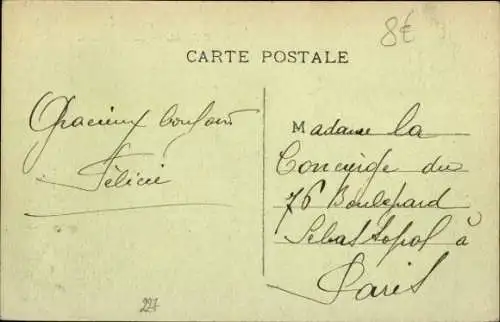 8€
CARTE POSTALE
Gracieux bonjour
Félicie
Madame la
Concierge du
76 Boulevard
Sebastopol à
Paris
227